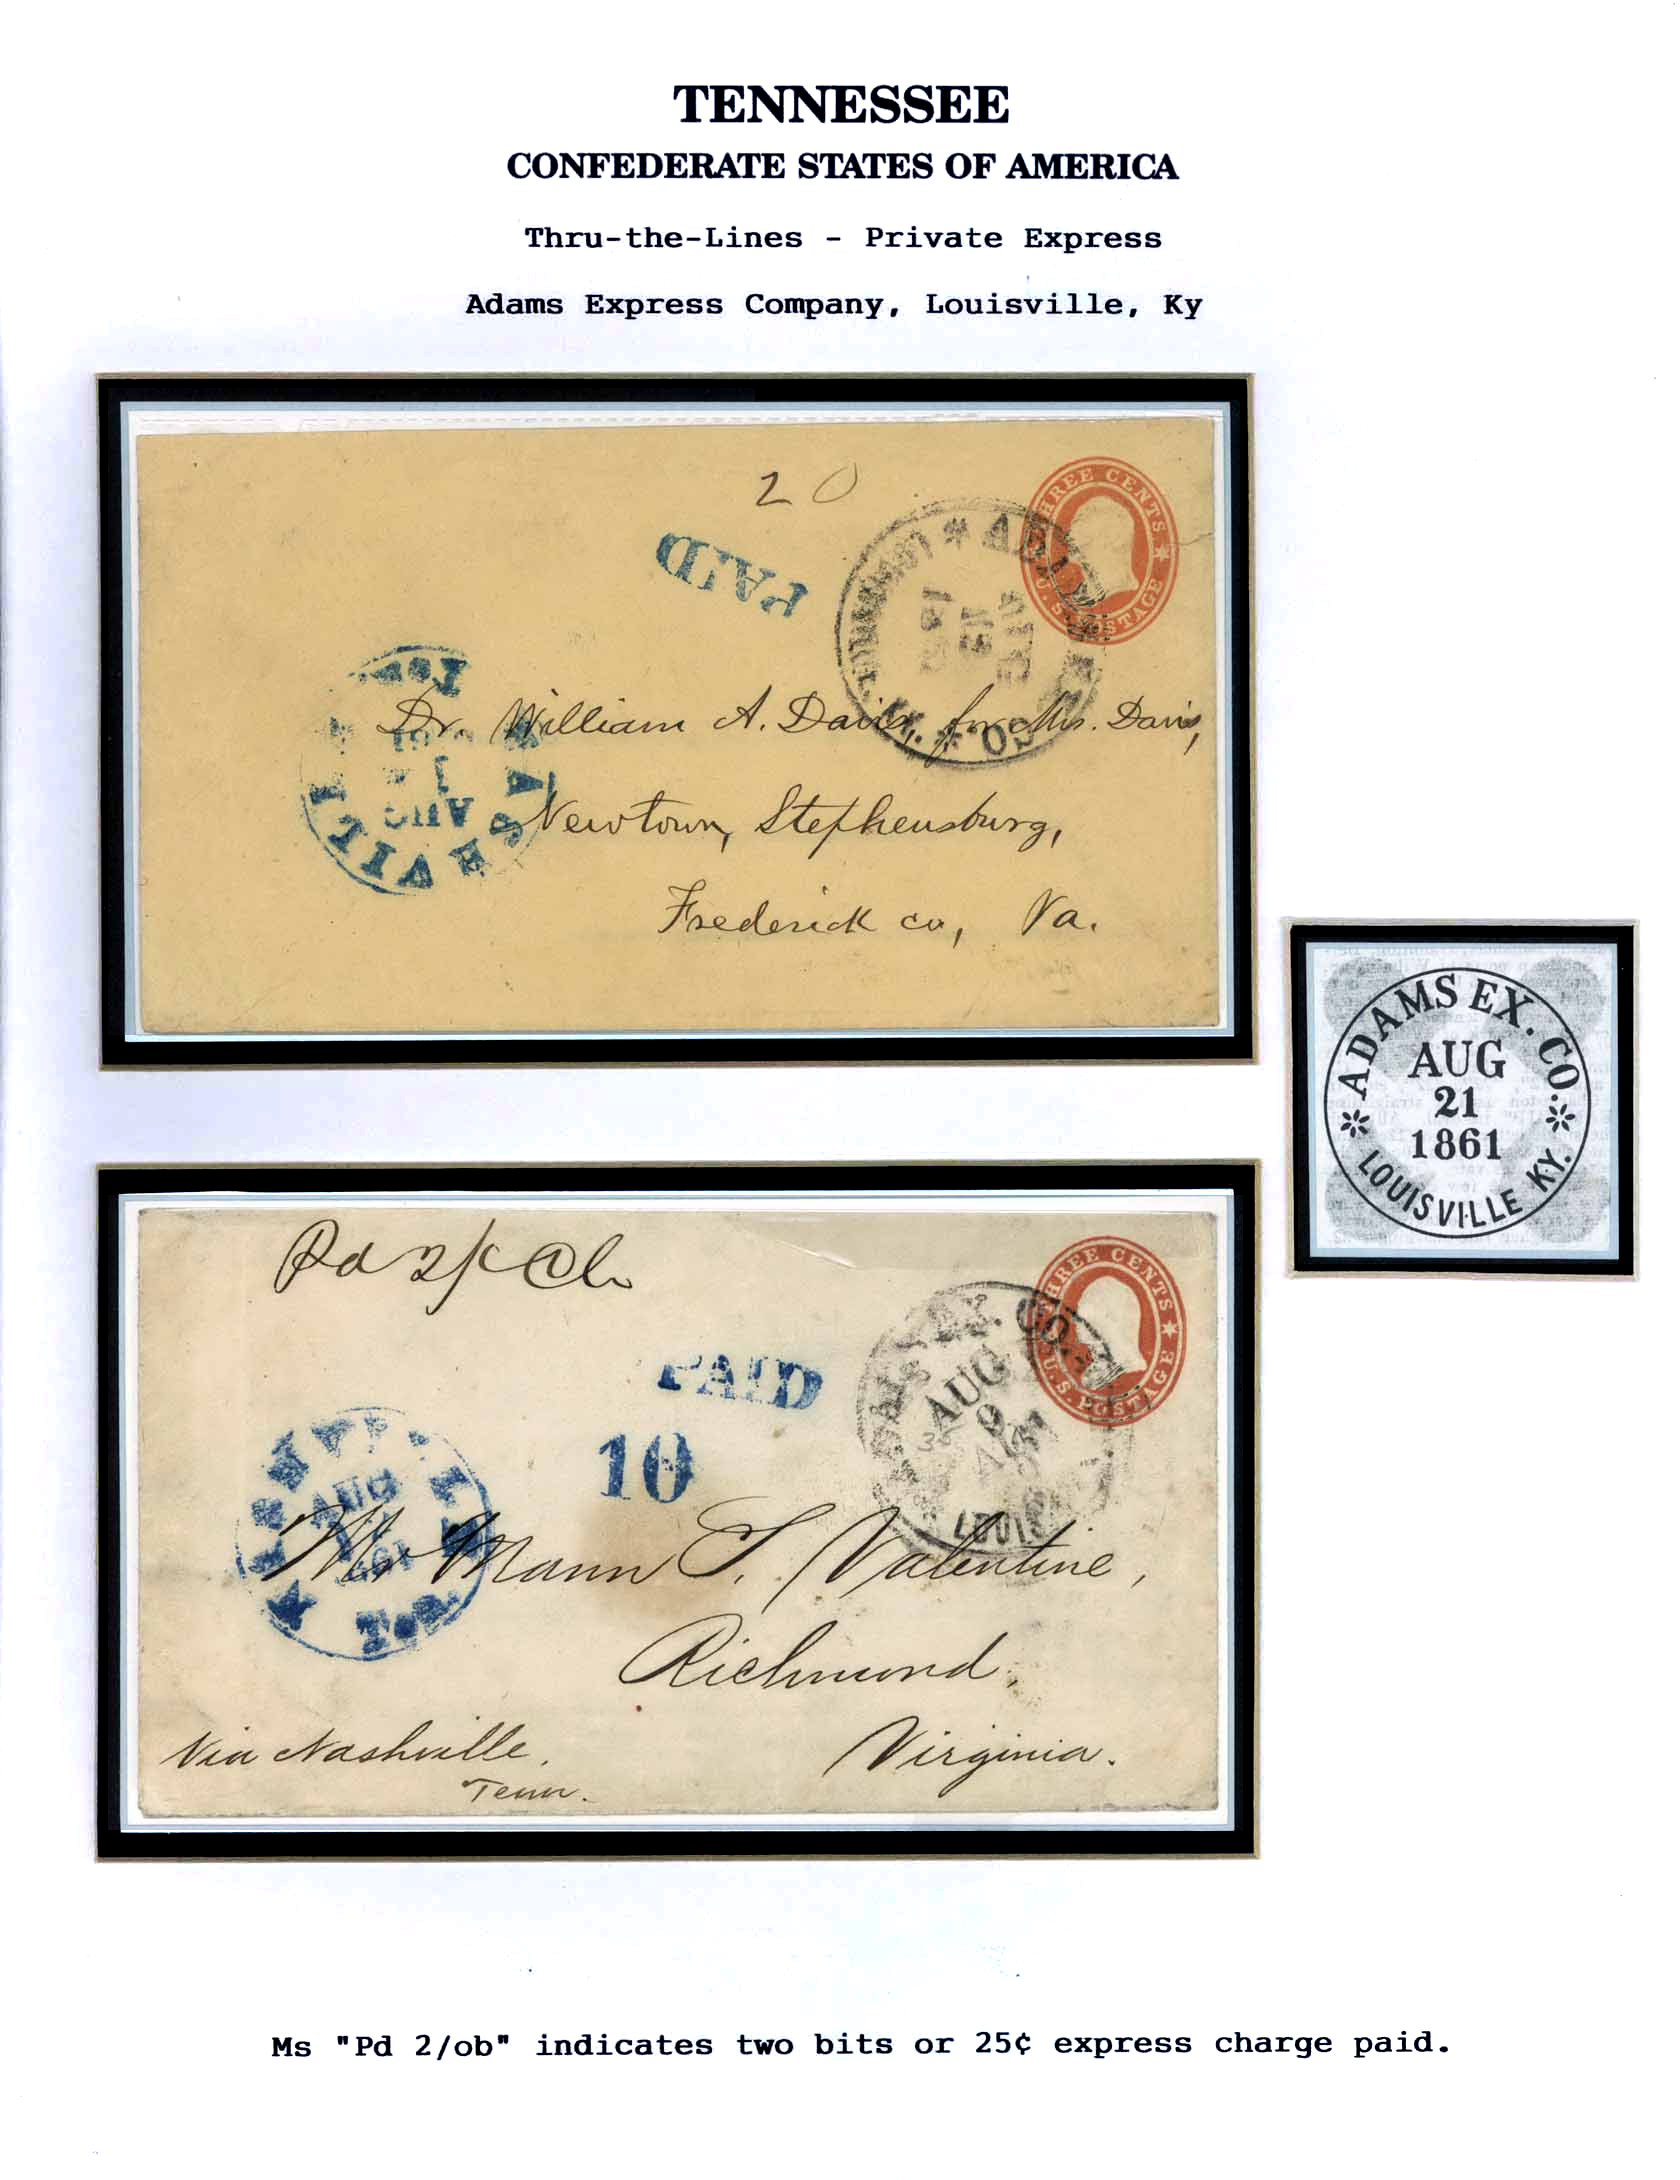 TENNESSEE
CONFEDERATE STATES OF AMERICA
Thru-the-Lines - Private Express
Adams Express Company, Louisville, Ky
20
THREE CENTS
U.S. POSTAGE
PAID
AUG
1861
LOUISVILLE KY.
NASHVILLE
AUG
Dr. William A. Davis, for Mrs. Davis,
Newtown, Stephensburg,
Frederick co, Va.
ADAMS EX. CO.
AUG
21
1861
LOUISVILLE KY.
Pd
THREE CENTS
U.S. POSTAGE
PAID
10
ADAMS EX. CO.
AUG
9
LOUIS
NASHVILLE
AUG
Mr Mann S. Valentine,
Richmond
Via Nashville, Virginia.
Tenn.
Ms "Pd 2/ob" indicates two bits or 25¢ express charge paid.